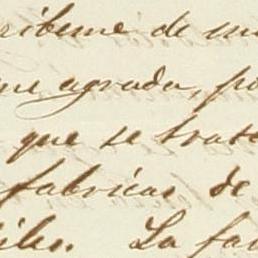 ribeme de mi
me agrada, po
que se trate
fabricas de
iles. La fa